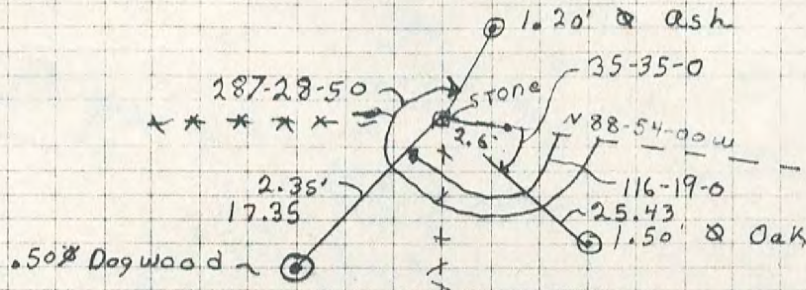 1.20' Ø Ash
35-35-0
287-28-50
STONE
N 88-54-00W
2.6'
116-19-0
2.35'
17.35
25.43
1.50' Ø Oak
.50Ø Dogwood